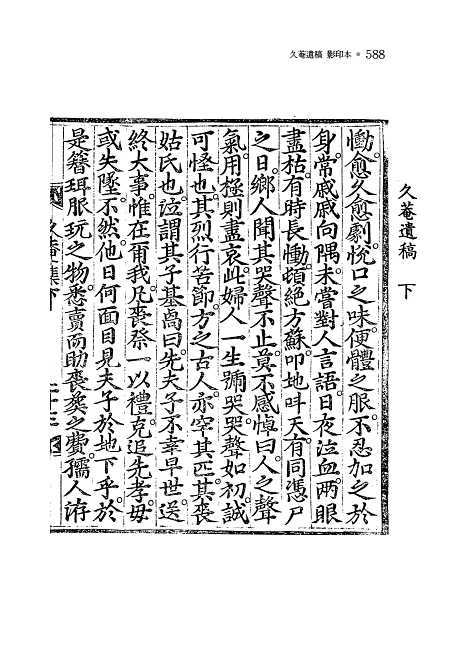 久菴遺稿 影印本 • 588
久菴遺稿 下
慟愈久愈劇悅口之味便體之服不忍加之於
身常戚戚向隅未嘗對人言語日夜泣血兩眼
盡枯有時長慟頓絕方蘇叩地叫天有同憑尸
之日鄕人聞其哭聲不止莫不感悼曰人之聲
氣用極則盡哀此婦人一生號哭哭聲如初誠
可怪也其烈行苦節方之古人亦罕其匹其喪
姑氏也泣謂其子基卨曰先夫子不幸早世送
終大事惟在爾我凡喪祭一以禮克追先孝毋
或失墜不然他日何面目見夫子於地下乎於
是簪珥服玩之物悉賣而助喪葬之費孺人洊
久菴集下